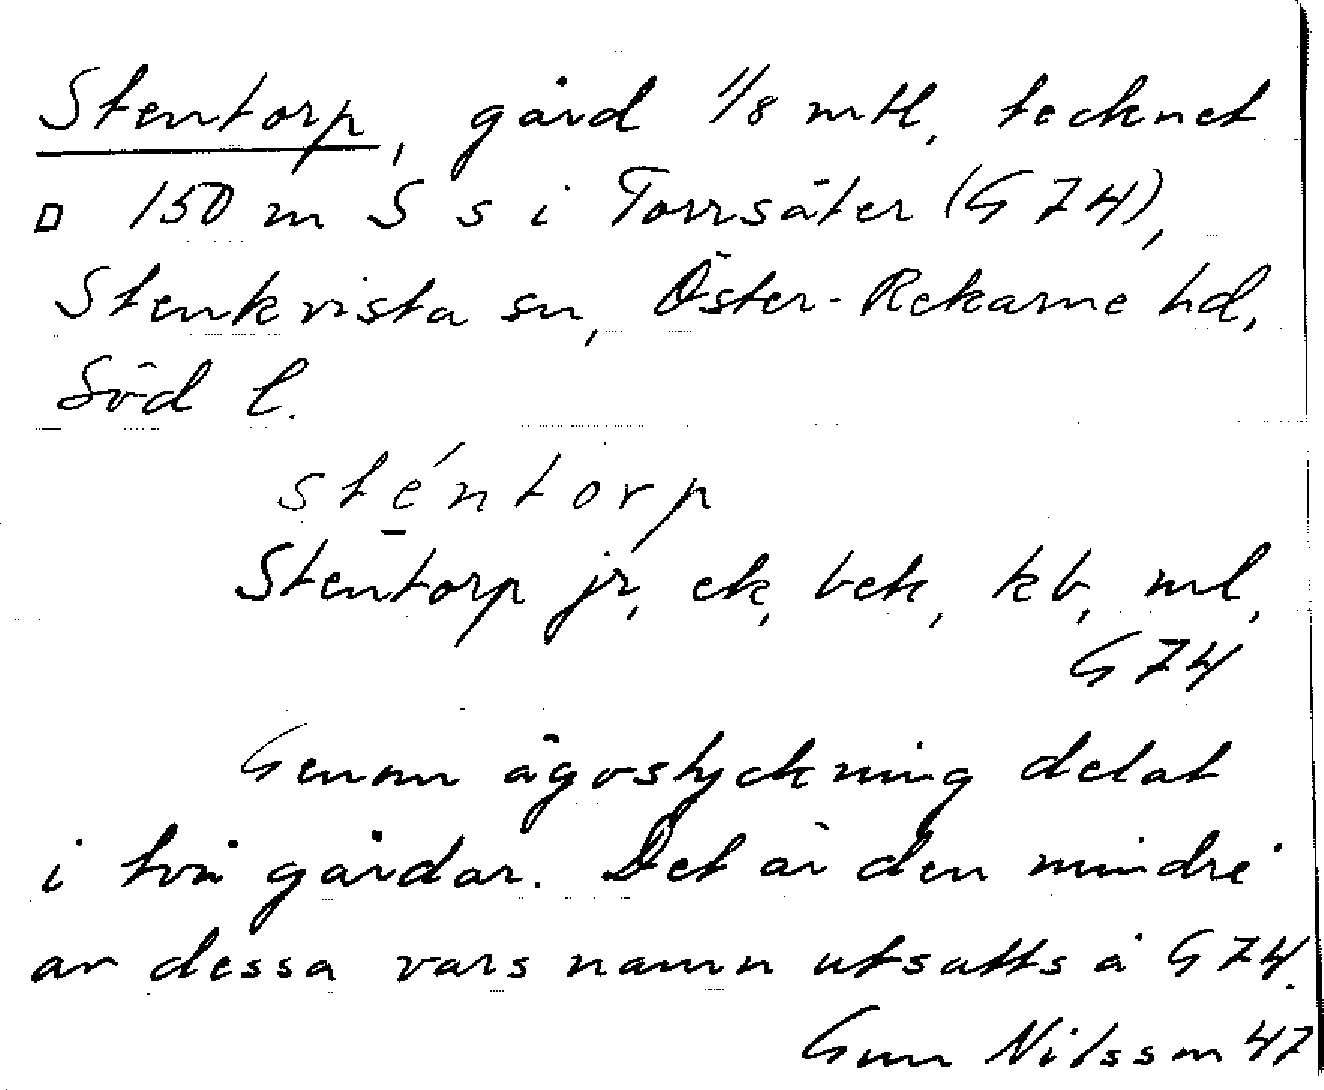 Stentorp, gård 1/8 mtl, tecknet
□ 150 m S s i Torrsäter (G 74),
Stenkvista sn, Öster-Rekarne hd,
Söd l.
sténtorp
Stentorp jr, ek, bek, kb, ml,
G 74
Genom ägostyckning delat
i två gårdar. Det är den mindre
av dessa vars namn utsatts å G 74.
Gun Nilsson 47